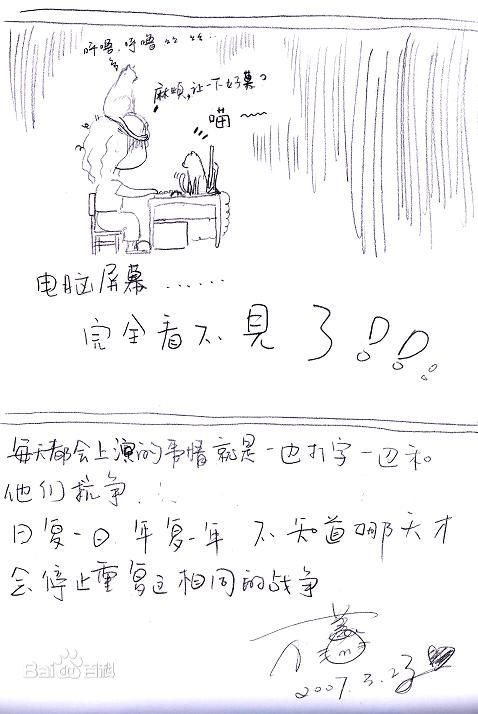 呼噜.呼噜……
麻烦,让一下好嘛?
喵~~
电脑屏幕......
完全看不見了!!
每天都会上演的事情就是一边打字一边和
他们抗争...
日复一日 年复一年 不知道哪天才
会停止重复这相同的战争
2007.3.23
Baidu百科